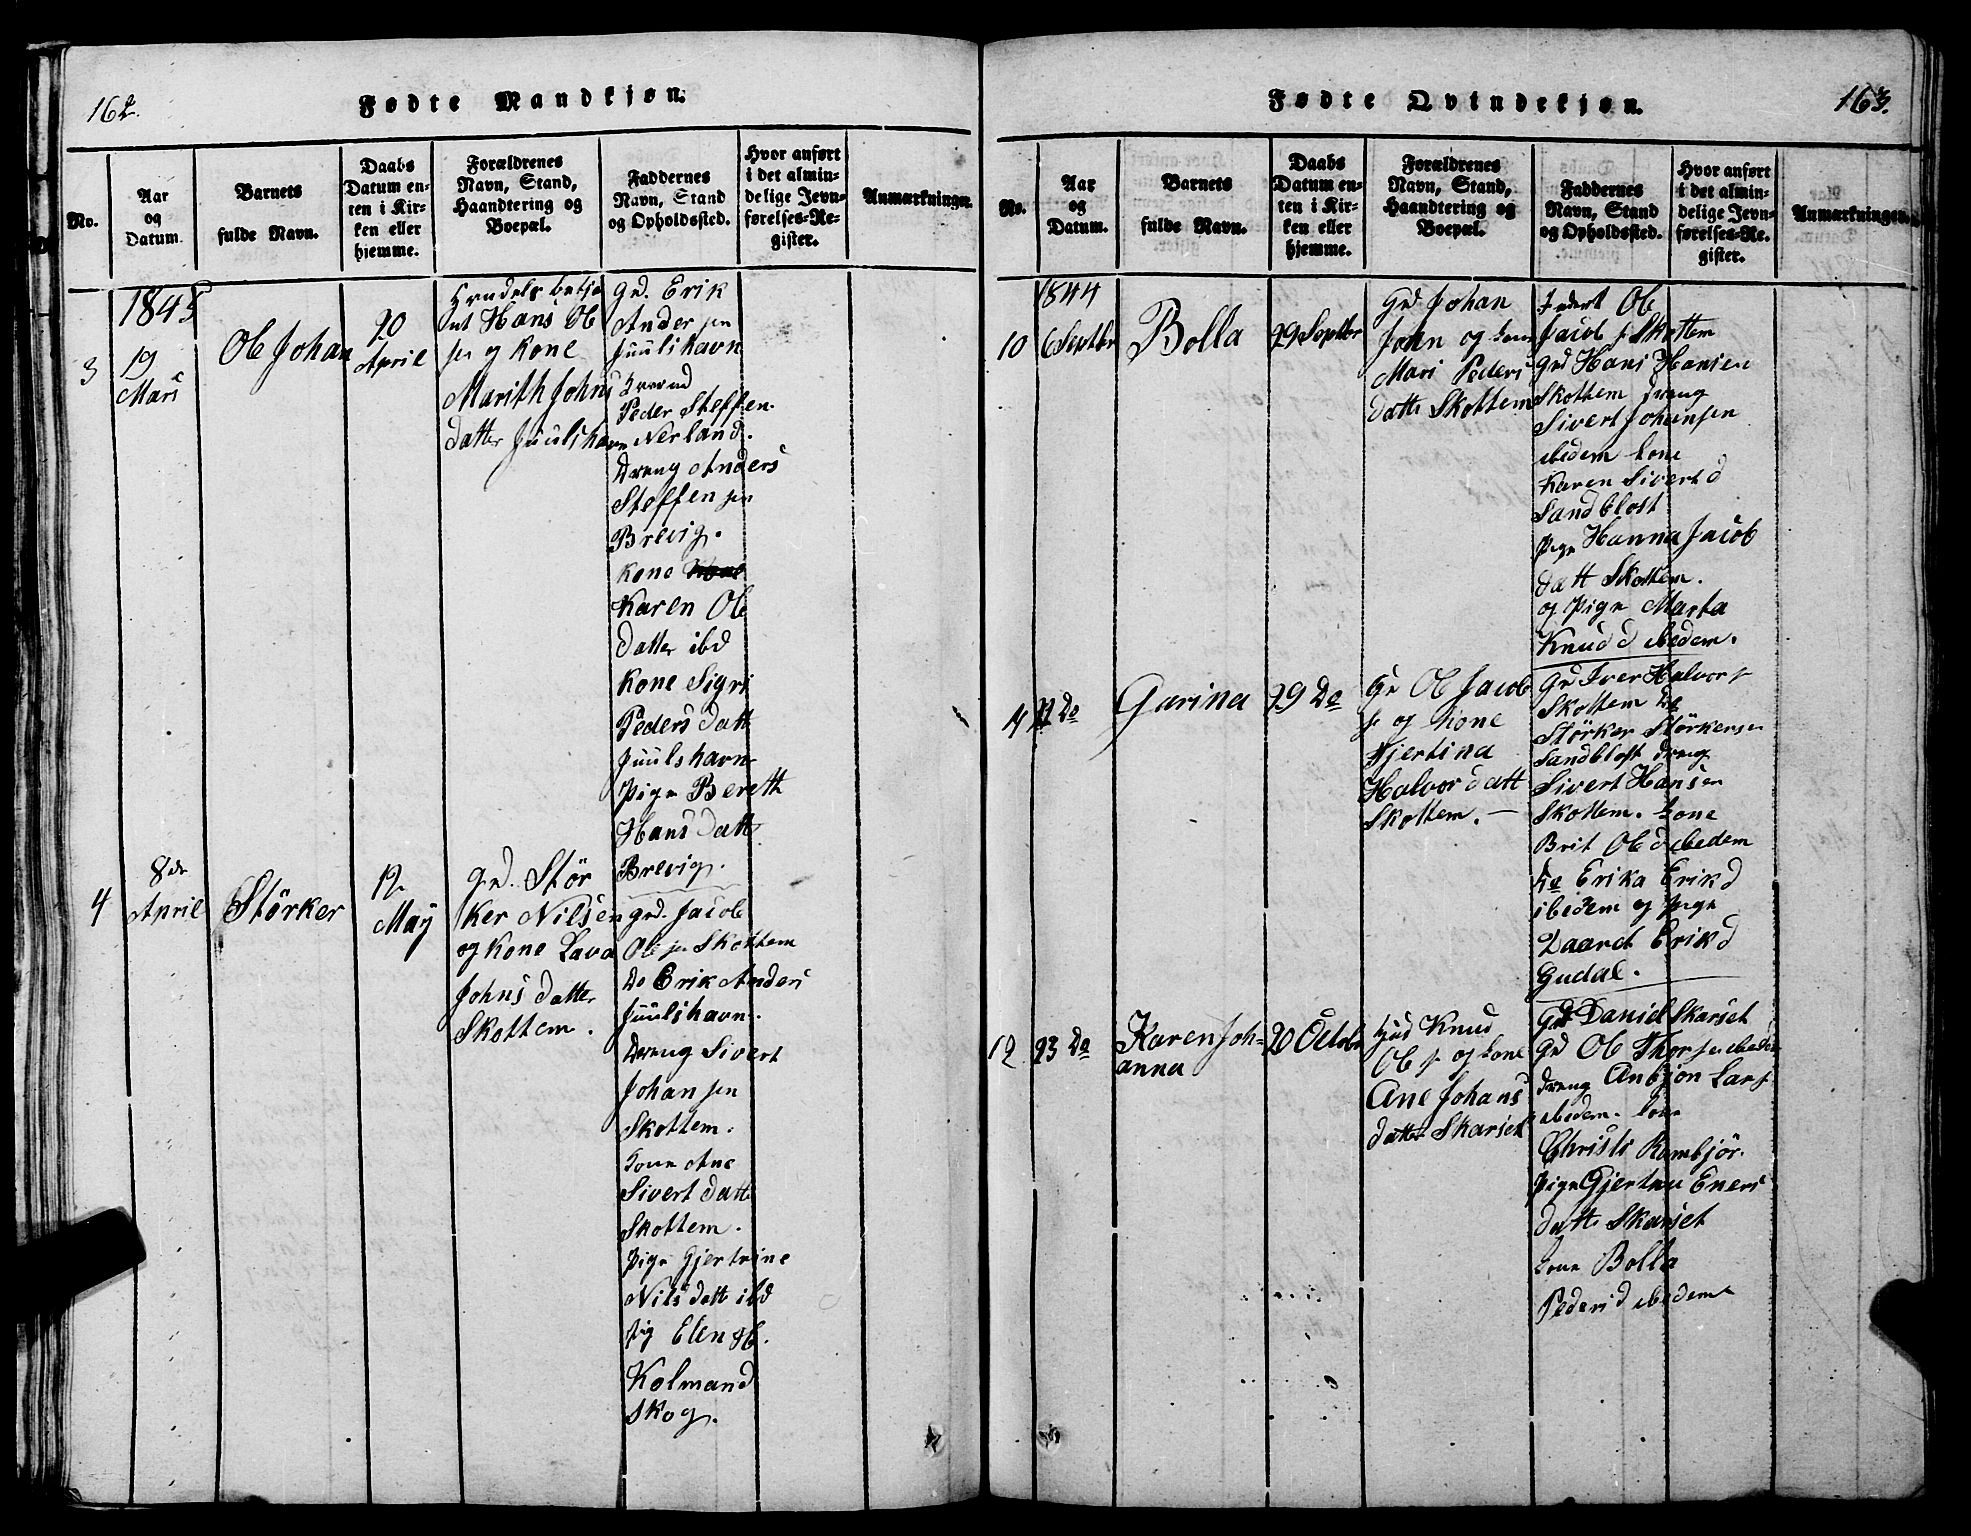 162.
Fødte Mandkjøn.
No.
Aar
og
Datum.
Barnets
fulde Navn.
Daabs
Datum en-
ten i Kir-
ken eller
hjemme.
Forældrenes
Navn, Stand,
Haandtering og
Boepæl.
Faddernes
Navn, Stand
og Opholdssted.
Hvor anført
i det almin-
delige Jevn-
førelses-Re-
gister.
Anmærkninger.
3
1845
19
Mars
Ole Johan
20
April
Hans Ole
sen og Kone
Marith Johns
datter Juulshavn
Grd. Erik
Andersen
Juulshavn
Peder Steffen
Nerland.
Dreng Anders
Steffensen
Brevig.
Kone
Karen Ole
datter ibd
Kone Sigri
Peders datt
Juulshavn
Pige Bereth
Hans datt
Brevig.
4
8de
April
Størker
12
May
grd. Stör
ker Nilsen
og Kone Lava
Johns datter
Skottem.
grd. Jacob
Olesen Skottem
Do Erik Anders
Juulshavn.
Dreng Sivert
Johansen
Skottem.
Kone Ane
Sivert datt
Skottem.
Pige Gjertrine
Nils datt ibd
Pig Elen H.
Kolmand
Skog.
Fødte Qvindekjøn.
163.
No.
Aar
og
Datum.
Barnets
fulde Navn.
Daabs
Datum en-
ten i Kir-
ken eller
hjemme.
Forældrenes
Navn, Stand,
Haandtering og
Boepæl.
Faddernes
Navn, Stand
og Opholdssted.
Hvor anført
i det almin-
delige Jevn-
førelses-Re-
gister.
Anmærkninger.
1844
10
6 Septbr
Bolla
29 Septbr
Grd Johan
John og Kone
Mari Peders
datte Skottem
Ole
Jacob s Skottem
grd Hans Hansen
Skottem Dreng
Sivert Johansen
ibedem Kone
Karen Sivert d
Sandblost
Pige Hanna Jacob
datt Skottem.
og Pige Marta
Knud d ibedem.
12 Do
Garina
29 Do
Gr Ole Jacob
s og Kone
Gjertina
Halvor datt
Skottem.
Gr Iver Halvor s
Skottem Do
Størker Størkersen
Sandblost Dreng
Sivert Hansen
Skottem. Kone
Brit Ole d ibedem
Do Erika Erik d
ibedem og Pige
Erik d
Gudal.
12
23 Do
Karen Joh-
anna
20 Octobr
Knud
Ole s og Kone
Ane Johans
datter Skarset
Daniel Skarset
Gr Ole Thorsen ibedem
Dreng Anbjøn Lars
ibedem. Kone
Christi Rambjör.
Pige Gjertru Eners
datte Skarset
Kone Bolla
Peders d ibedem